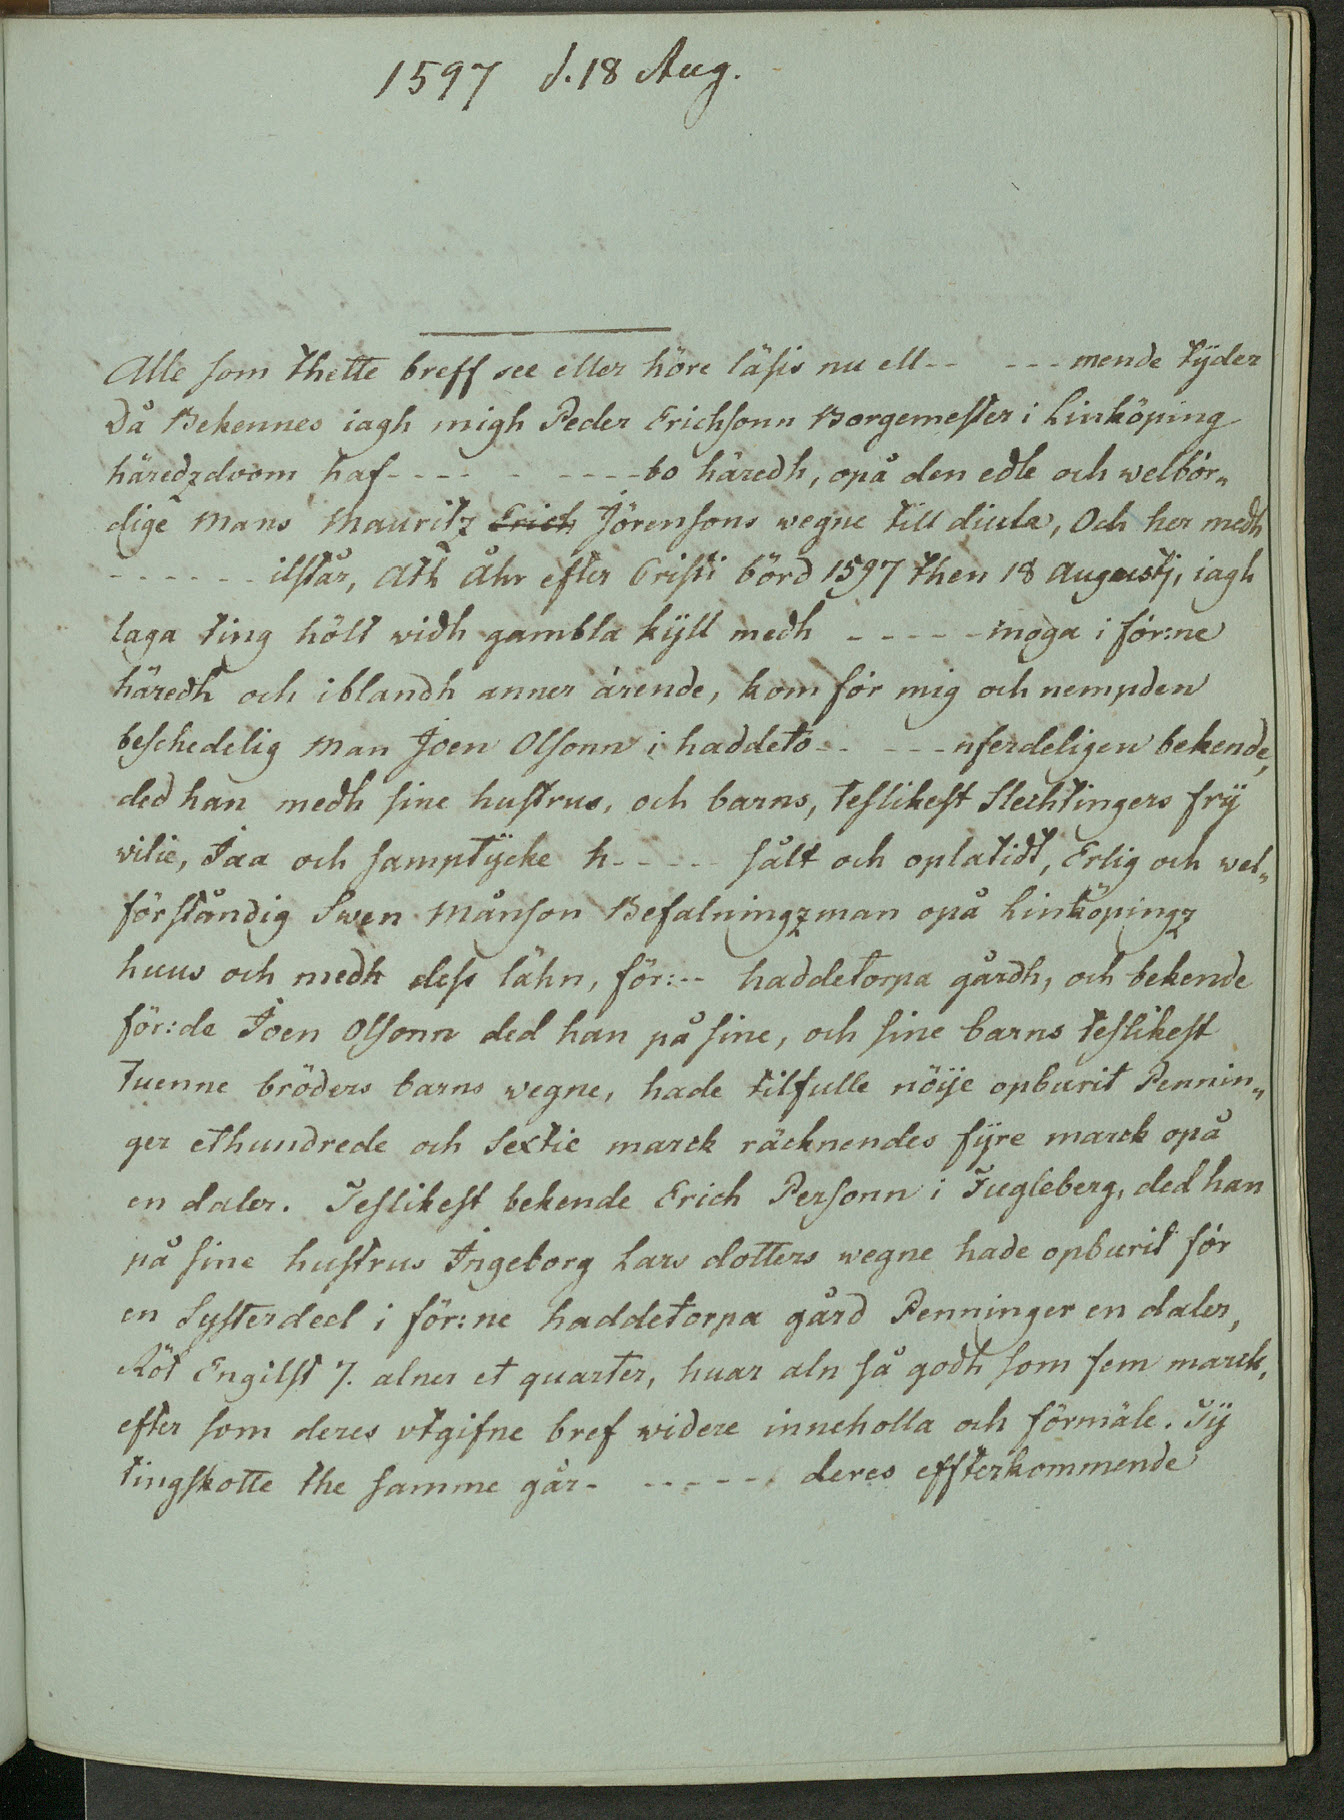 1597 d. 18 Aug.
Alle som thette breff see eller höre läsis nu ell-- --- mende tÿder
Då Bekennes iagh migh Peder Erichsonn Borgemester i Linköping
häredzdoom haf---- - -----bo häredh, opå den edle och welbör„
dige Mans Mauritz Erich Jörensons wegne till diula, Och her medh
------ ilstår, Ath åhr efter Cristi börd 1597 then 18 Augustj, iagh
laga ting hölt widh gambla kÿll medh ----- moga i för:ne
häredh och iblandh anner ärende, kom för mig och nempden
beschedelig Man Joen Olsonn i haddeto-- ---nferdeligen bekende,
ded han medh sine hustrus, och barns, teslikest Slechtingers frÿ
vilie, Jaa och samptÿcke h----- sålt och oplatidt, Erlig och wel„
förståndig Swen Månson Befalningzman opå Linköpingz
huus och medh dess lähn, för:-- haddetorpa gårdh, och bekende
för:de Joen Olsonn ded han på sine, och sine barns teslikest
tuenne bröders barns wegne, hade tilfulle nöije opburit Pennin„
ger ethundrede och Sextie marck räcknendes fÿre marck opå
en daler. Teslikest bekende Erich Personn i Fugleberg, ded han
på sine hustrus Ingeborg Lars dotters wegne hade opburit för
en Systerdeel i för:ne haddetorpa gård Penninger en daler,
Röt Engilst 7. alner et quarter, huar aln så godh som fem marck,
efter som deres vtgifne bref widere inneholla och förmäle. Tÿ
tingskotte the samme går- ----- deres effterkommende